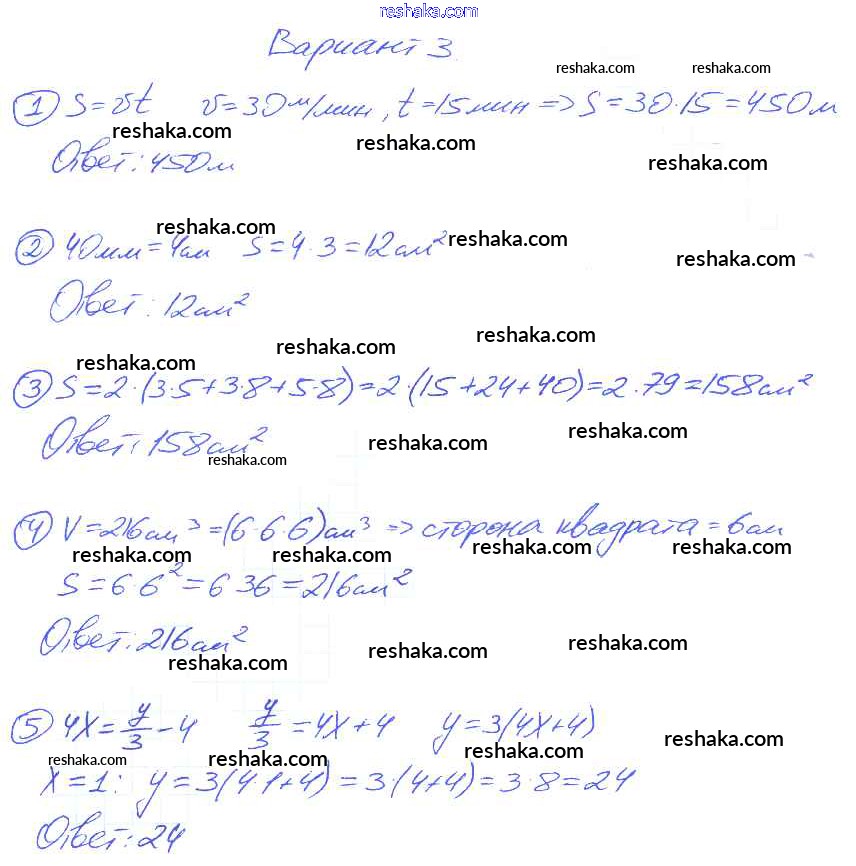 reshaka.com
Вариант 3
reshaka.com reshaka.com
① S=vt v=30м/мин, t=15мин => S=30·15=450м
reshaka.com reshaka.com reshaka.com
Ответ: 450м
reshaka.com reshaka.com reshaka.com
② 40мм=4см S=4·3=12см²
Ответ: 12см²
reshaka.com reshaka.com reshaka.com
③ S=2·(3·5+3·8+5·8)=2·(15+24+40)=2·79=158см²
Ответ: 158см²
reshaka.com reshaka.com reshaka.com
④ V=216см³=(6·6·6)см³ => сторона квадрата=6см
reshaka.com reshaka.com reshaka.com reshaka.com
S=6·6²=6·36=216см²
Ответ: 216см²
reshaka.com reshaka.com reshaka.com
⑤ 4x=y/3-4 y/3=4x+4 y=3(4x+4)
reshaka.com reshaka.com reshaka.com reshaka.com
x=1: y=3(4·1+4)=3·(4+4)=3·8=24
Ответ: 24